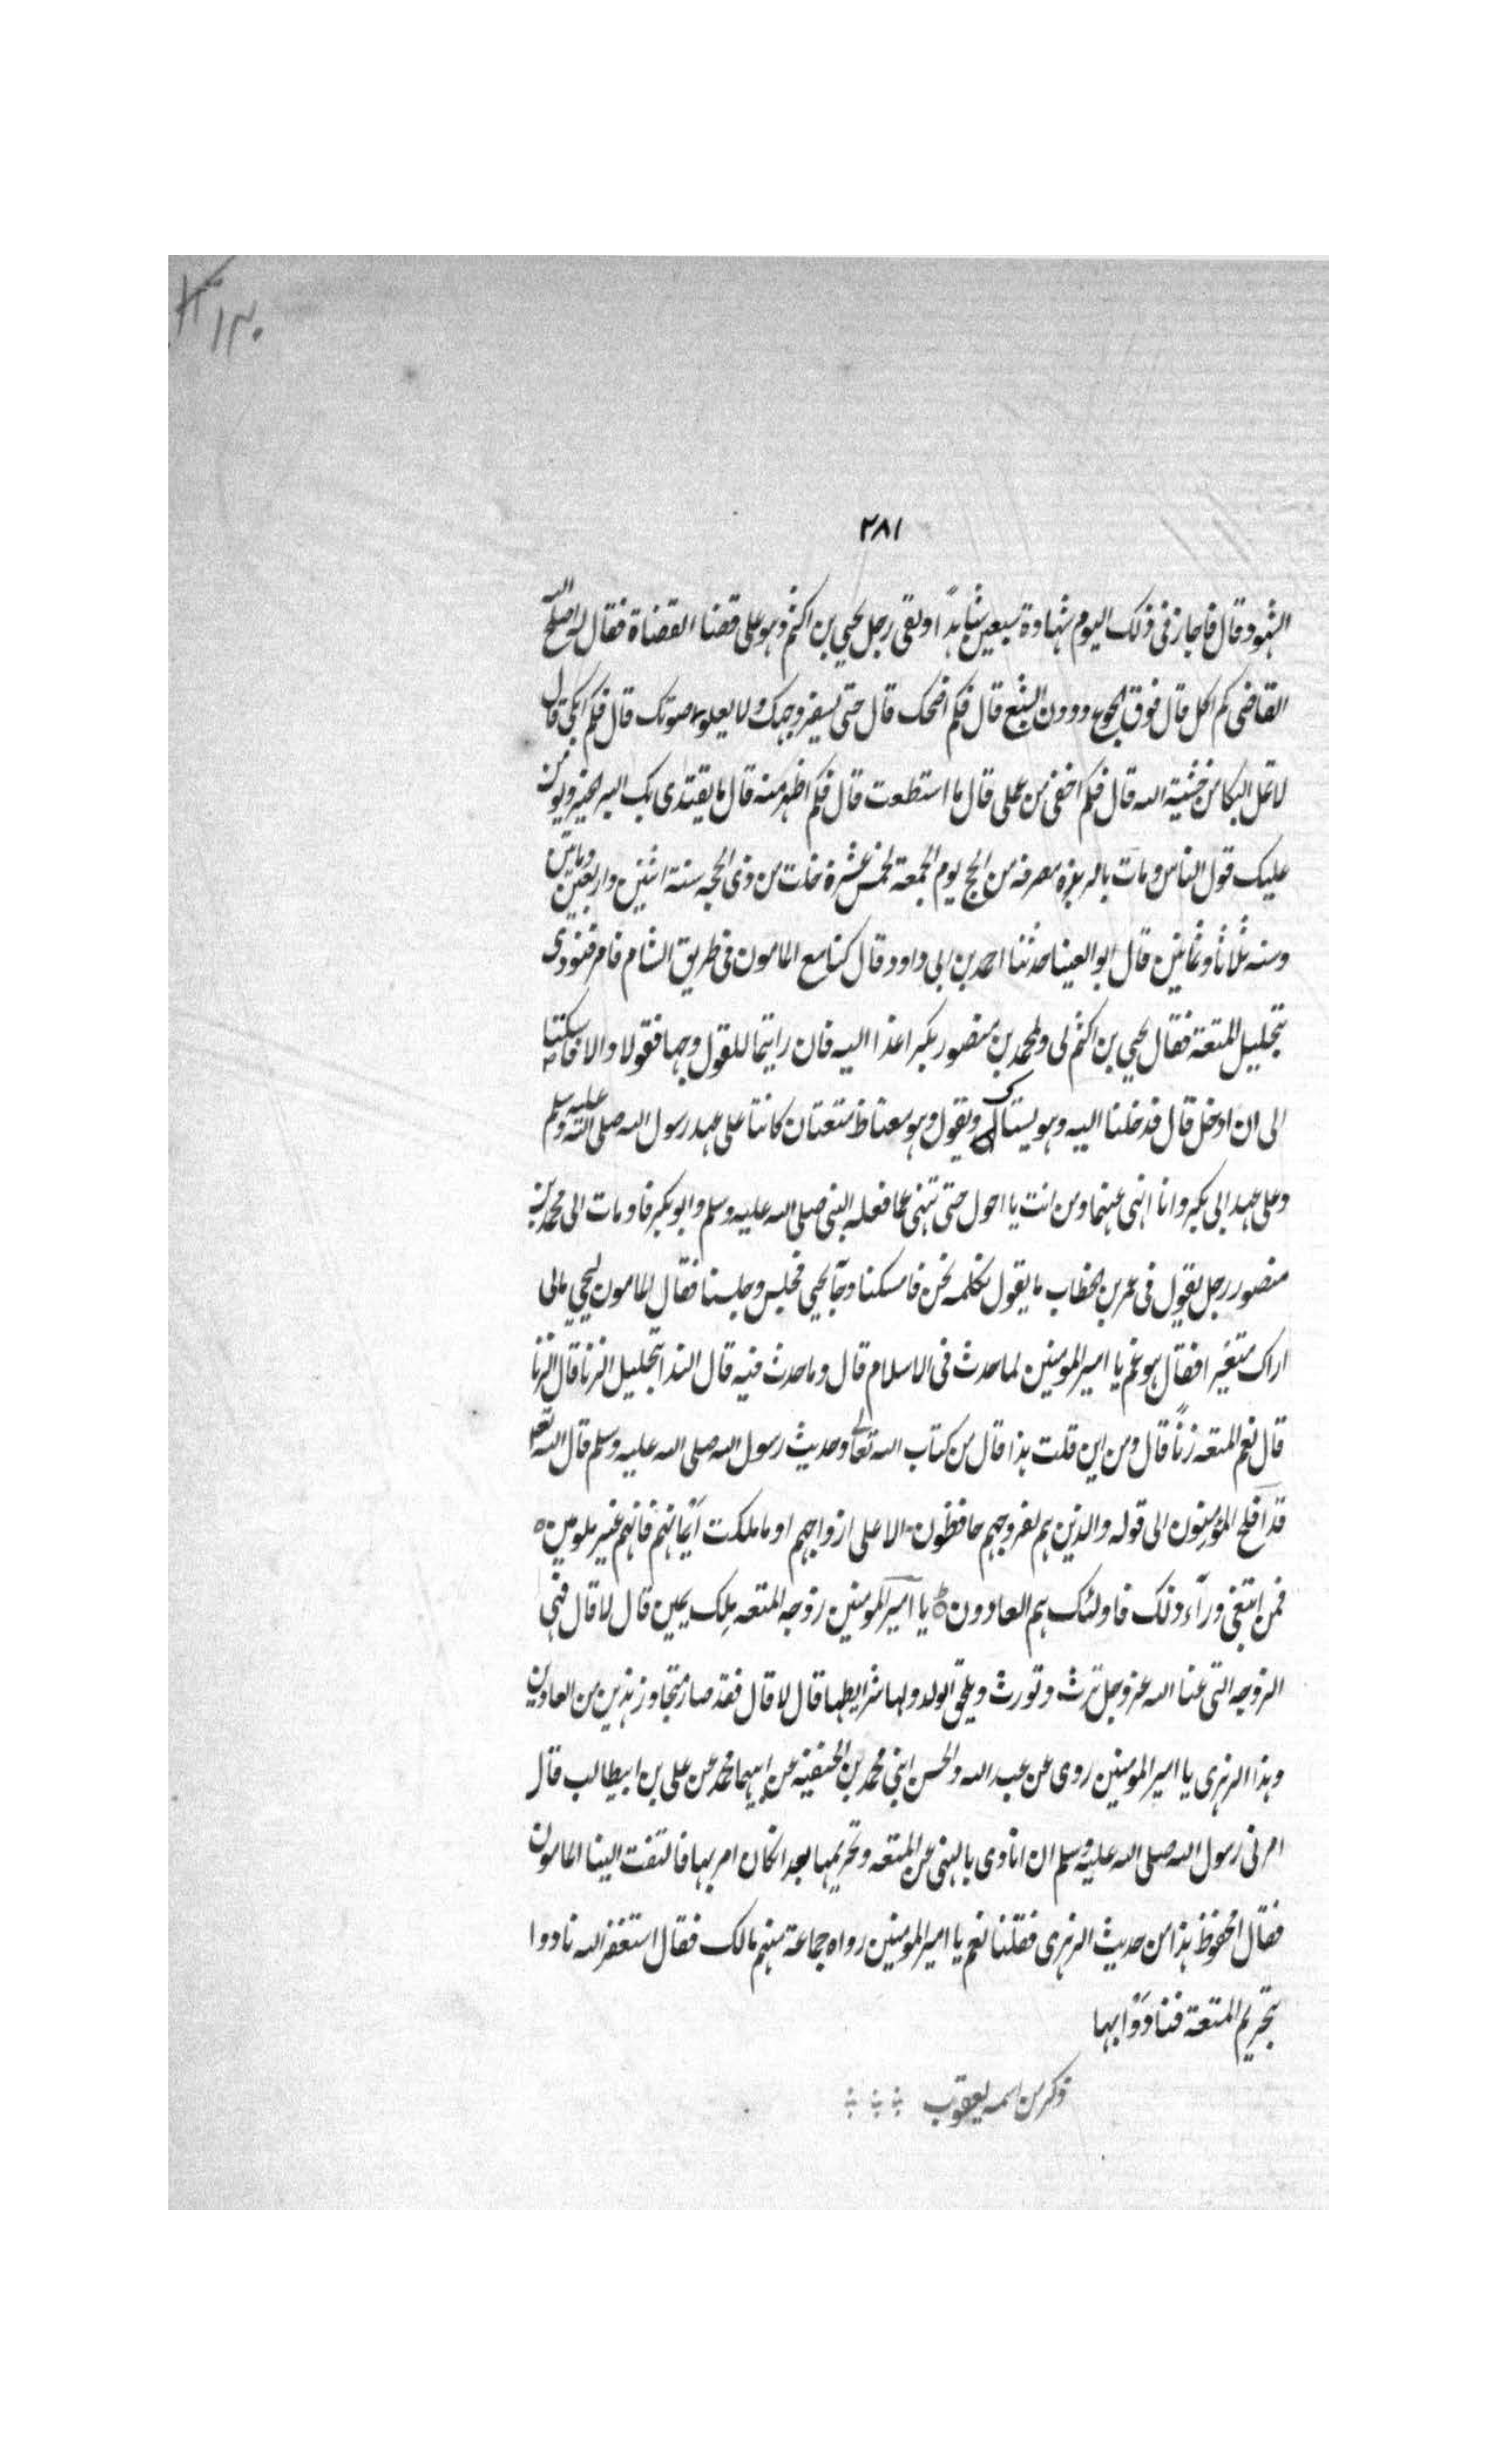 ١٢٠
٢٨١
الشهود وقال فاجاز فى ذلك اليوم شهادة سبعين شاهدًا ولقى رجل يحيي بن اكثم وهو على قضاء القضاة فقال له اصلح الله
القاضى كم اكل قال فوق الجوع ودون الشبع قال فكم اضحك قال حتى يسفر وجهك ولا يعلو صوتك قال فكم ابكى قال
لا تمل البكا من خشية الله قال فكم اخفى من عملى قال ما استطعت قال فكم اظهر منه قال ما يقتدى بك البر الخير ويومن
عليك قول الناس ومات بالربزة منصرفه من الحج يوم الجمعة لخمس عشرة خلت من ذى الحجه سنة اثنين واربعين وماتين
وسنه ثلاثا وثمانين قال ابو العينا حدثنا احمد بن ابى داود قال كنا مع المامون فى طريق الشام فامر فنودى
بتحليل المتعة فقال يحيي بن اكثم لى ولمحمد بن منصور بكرا غدا اليه فان رايتما للقول وجها فقولا والا فاسكتا
الى ان ادخل قال فدخلنا اليه وهو يستاك ويقول وهو مغتاظ متعتان كانتا على عهد رسول الله صلى الله عليه وسلم
وعلى عهد ابى بكر وانا انهى عنهما ومن انت يا احول حتى تنهى عما فعله النبى صلى الله عليه وسلم وابو بكر فاومات الى محمد بن
منصور رجل يقول فى عمر بن الخطاب ما يقول نكلمه نحن فامسكنا وجآ يحيي فجلس وجلسنا فقال المامون ليحيي مالى
اراك متغيرا فقال هو غم يا امير المومنين لما حدث فى الاسلام قال وما حدث فيه قال الندا بتحليل الزنا قال الزنا
قال نعم المتعه زناً قال ومن اين قلت هذا قال من كتاب الله تعالى وحديث رسول الله صلى الله عليه وسلم قال الله تعالى
قد افلح المؤمنون الى قوله والذين هم لفروجهم حافظون الا على ازواجهم او ما ملكت أيمانهم فانهم غير ملومين
فمن ابتغى ورآء ذلك فاولئك هم العادون يا امير المومنين زوجه المتعه ملك يمين قال لا قال فهى
الزوجه التى عنا الله عز وجل ترث وتورث ويلحق الولد ولها شرايطها قال لا قال فقد صار متجاوز هذين من العادين
وهذا الزهرى يا امير المومنين روى عن عبد الله والحسن ابنى محمد بن الحنفيه عن ابيهما محمد عن على بن ابيطالب قال
امرنى رسول الله صلى الله عليه وسلم ان انادى بالنهى عن المتعه وتحريمها بعد انكان امر بها فالتفت الينا المامون
فقال المحفوظ هذا من حديث الزهرى فقلنا نعم يا امير المومنين رواه جماعة منهم مالك فقال استغفر الله نادوا
بتحريم المتعة فنادوا بها
ذكر من اسمه يعقوب